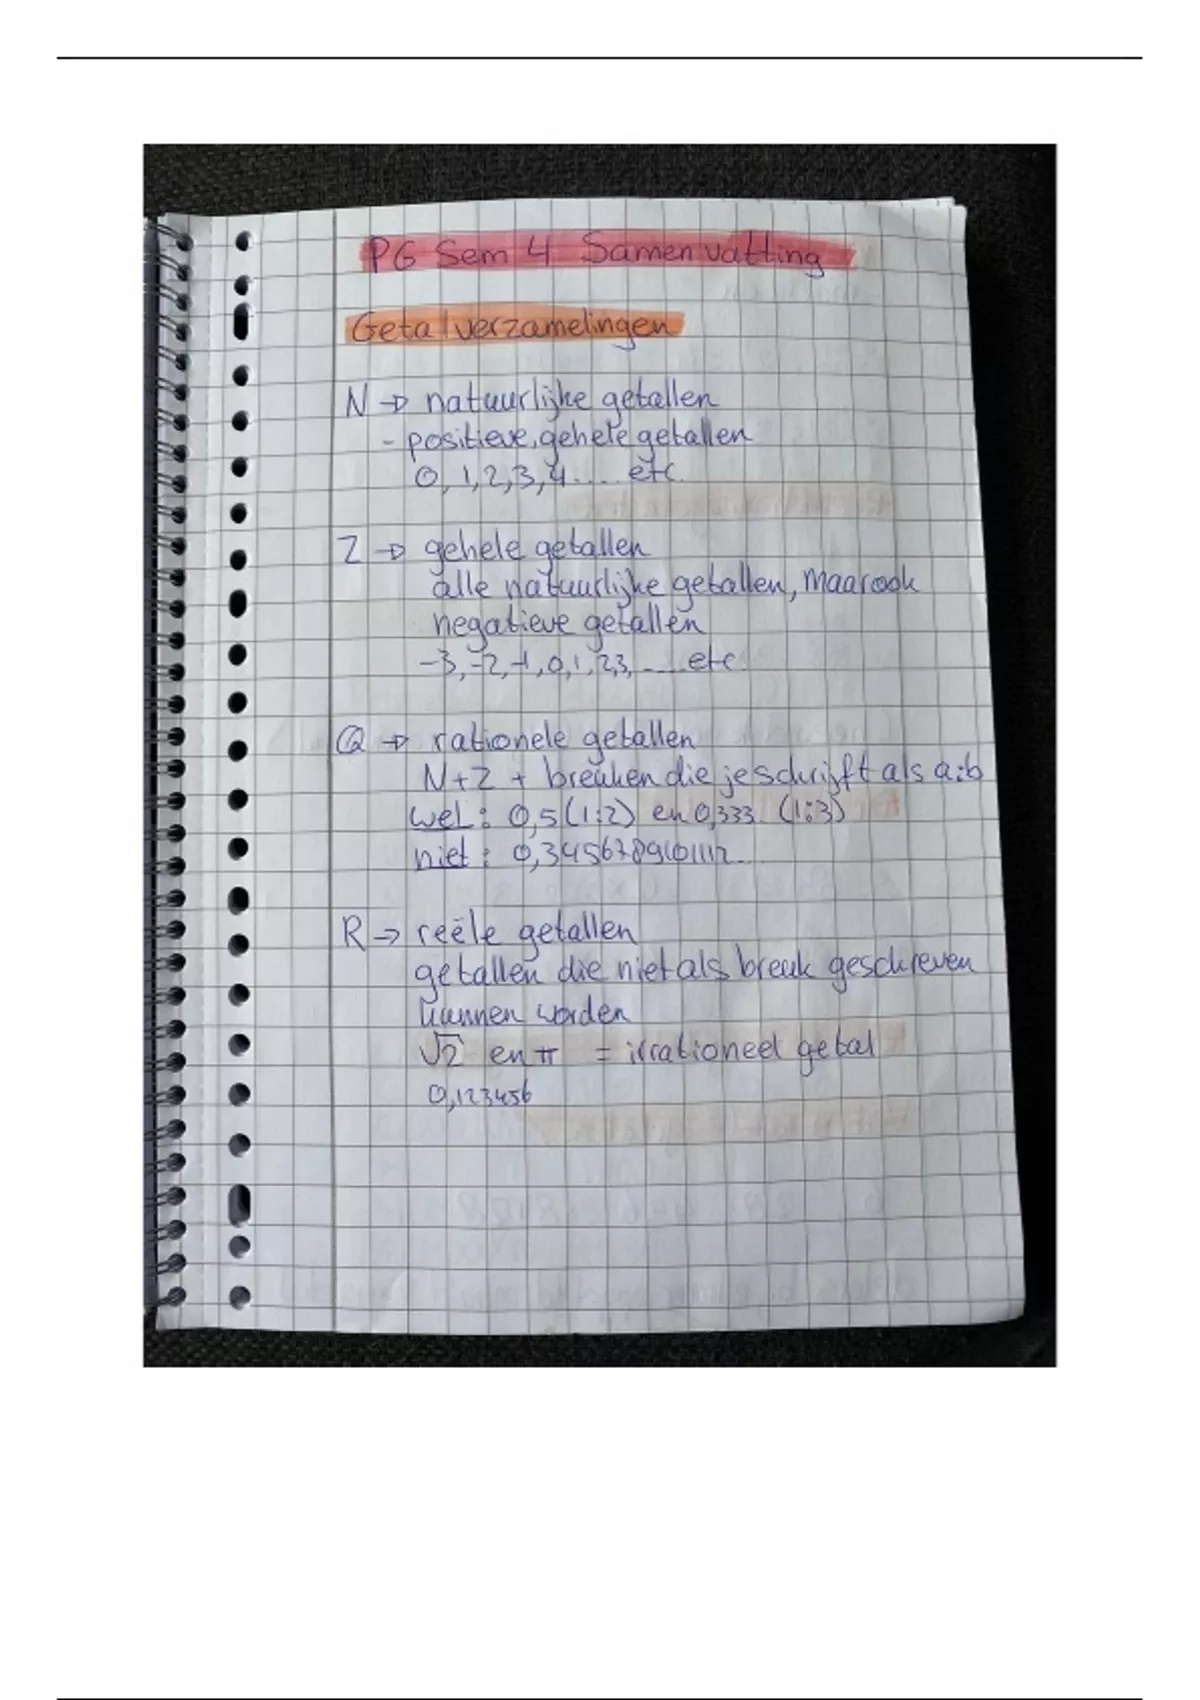 PG Sem 4 Samenvatting
Getalverzamelingen
N → natuurlijke getallen
- positieve, gehele getallen
0, 1, 2, 3, 4 ..... etc.
Z → gehele getallen
alle natuurlijke getallen, maar ook
negatieve getallen
-3, -2, -1, 0, 1, 2, 3, ..... etc.
Q → rationele getallen
N + Z + breuken die je schrijft als a:b
wel: 0,5 (1:2) en 0,333.. (1:3)
niet: 0,3456789101112....
R → reële getallen
getallen die niet als breuk geschreven
kunnen worden
√2 en π = irrationeel getal
0,123456